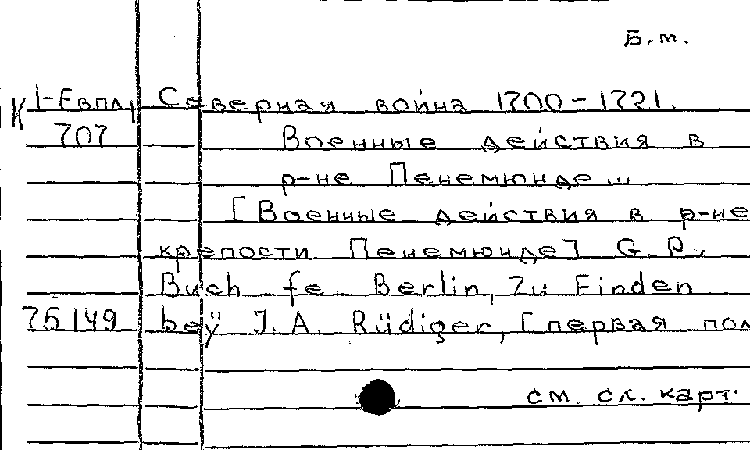 Б.м.
К 1-Евпл Северная война 1700-1721.
707 Военные действия в
р-не Пенемюнде...
[Военные действия в р-не
крепости Пенемюнде] G. P.
Buch fe Berlin, Zu Finden
76149 beÿ J. A. Rüdiger, [первая пол
см. сл. карт.